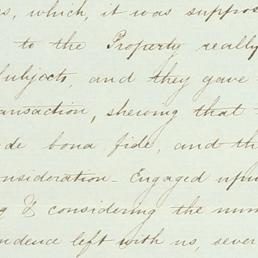 s, which, it was suppos
to the Property really
Subjects, and they gave
ransaction, shewing that
de bona fide, and th
onsideration - Engaged upon
g & considering the num
ndence left with us, sever